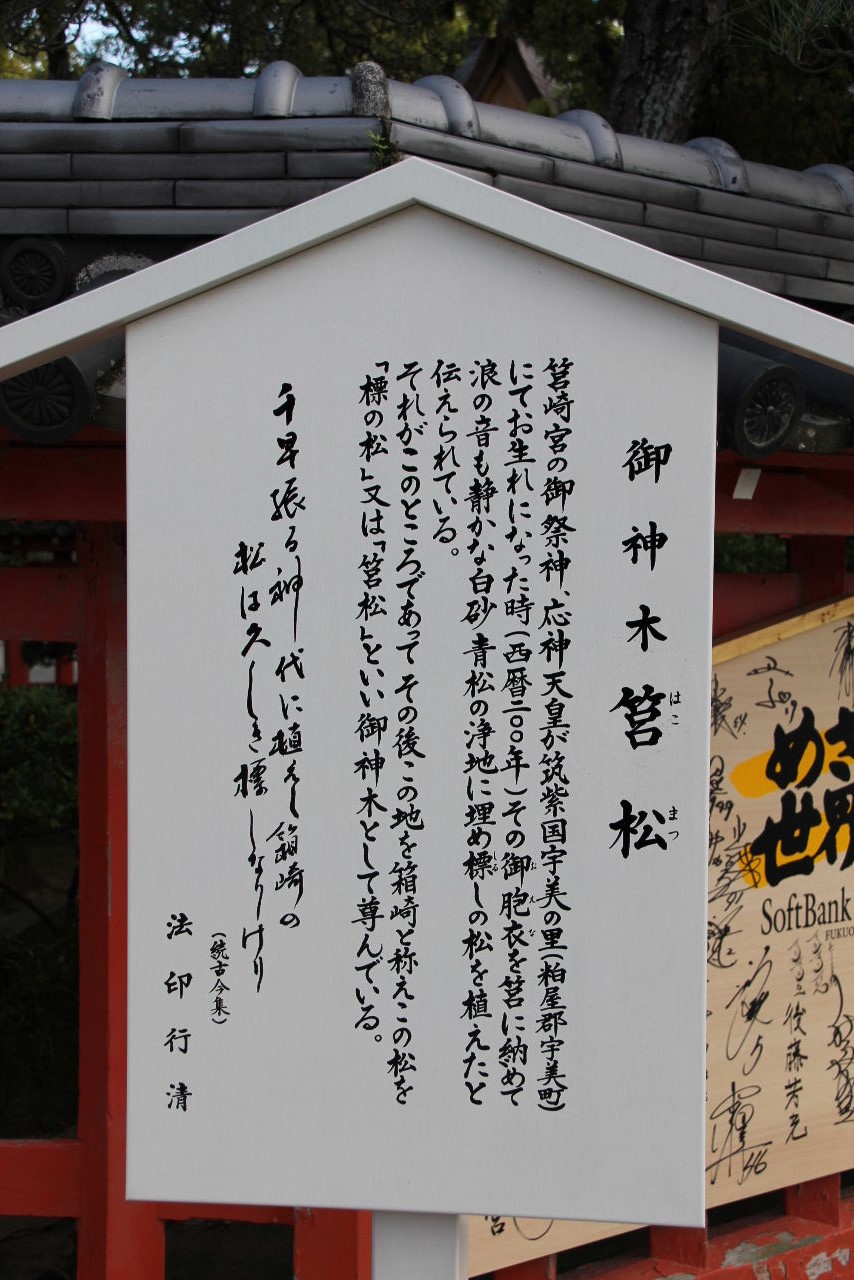 御神木筥松
はこ まつ
筥崎宮の御祭神、応神天皇が筑紫国宇美の里(粕屋郡宇美町)
にてお生れになった時(西暦二〇〇年)その御胞衣を筥に納めて
おえな
浪の音も静かな白砂青松の浄地に埋め標しの松を植えたと
しる
伝えられている。
それがこのところであってその後この地を箱崎と称えこの松を
「標の松」又は「筥松」といい御神木として尊んでいる。
千早振る神代に植えし箱崎の
松は久しき標しなりけり
(続古今集)
法印行清
めざ
世界
SoftBank
FUKUO
後藤芳光
宮